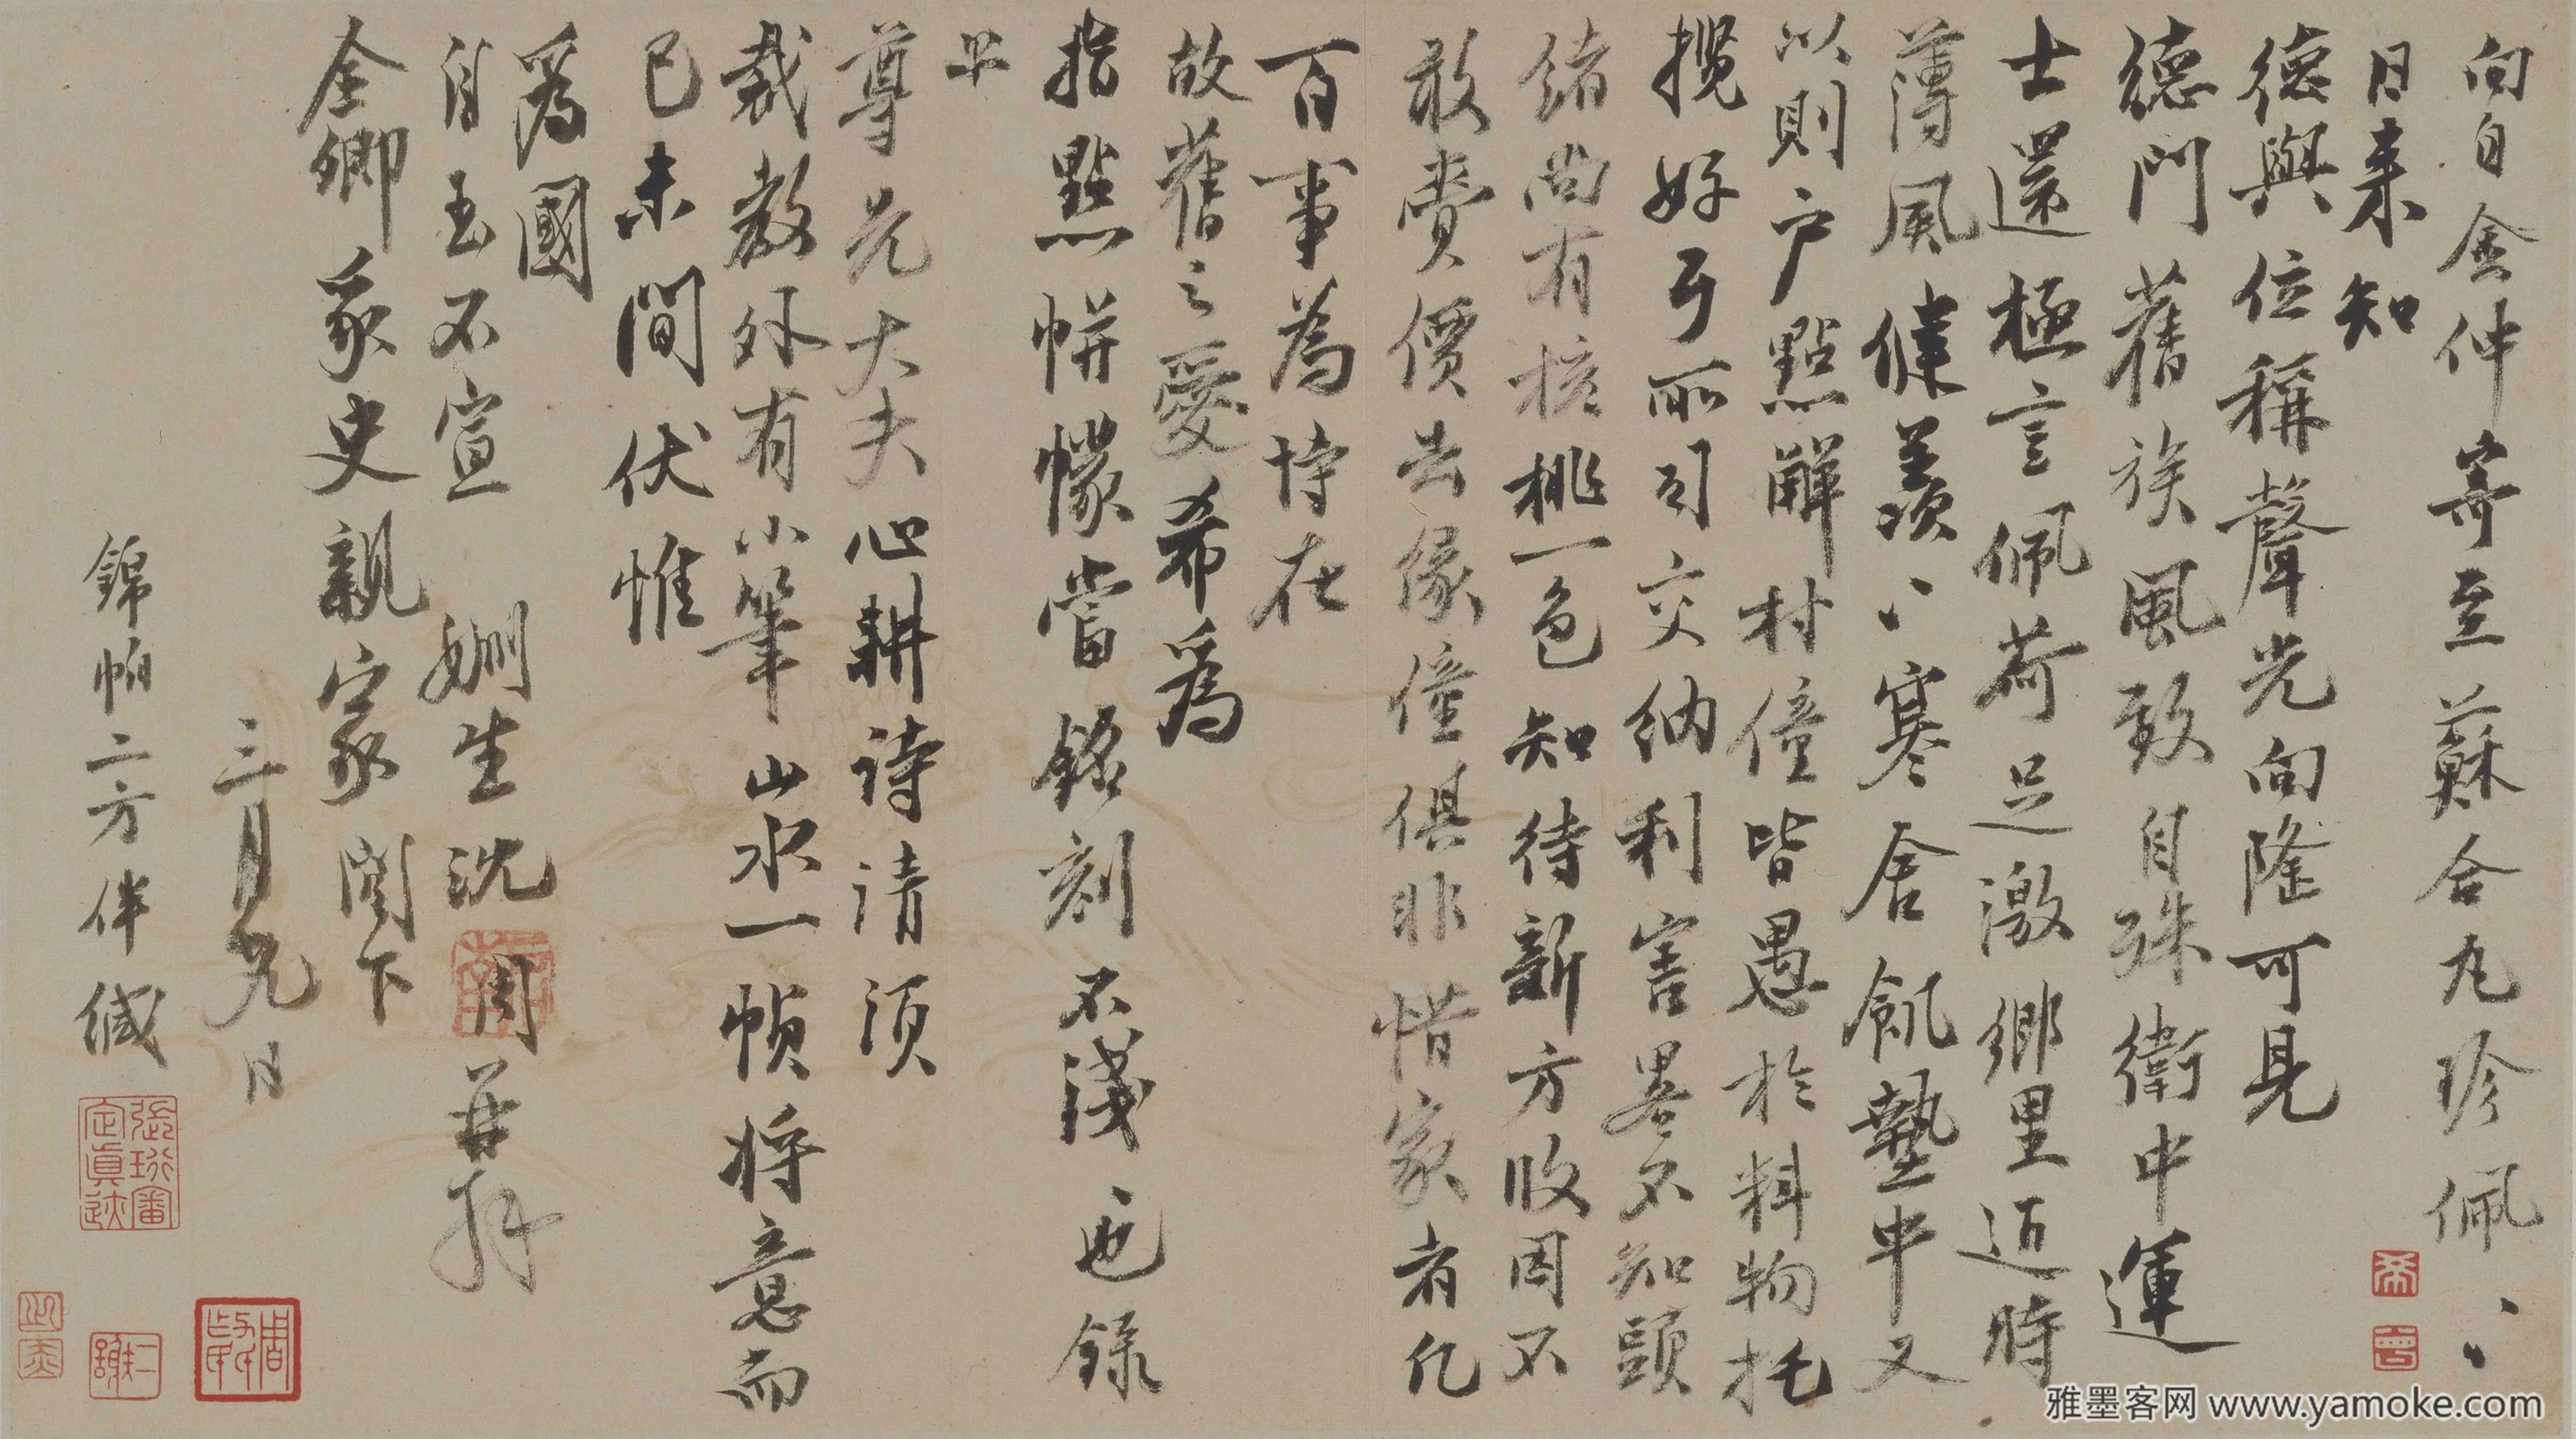 向自金仲寄至蘇合丸珍佩〻
日来知
德與位稱聲光向隆可見
德門舊族風致自殊衛中運
士還極言佩荷足激鄉里迈時
薄風健羨〻寒舍氤墊中又
以則户點解村僮皆愚於料物托
攬好了所司交纳利害畧不知頭
緒尚有梳桃一色知待新方收因不
敢賣價去緣僮俱非惜家者仡
百事為恃在
故舊之愛希為
指點帡幪當銘刻不淺也録
平
尊兄大夫心耕詩請须
裁教外有小筆山水一幀将意而
已未間伏惟
爲國
自玉不宣 姻生沈周再拜
全卿冢史親家閣下
三月九日
錦帕二方伴缄
張珩審定真迹
雅墨客网 www.yamoke.com